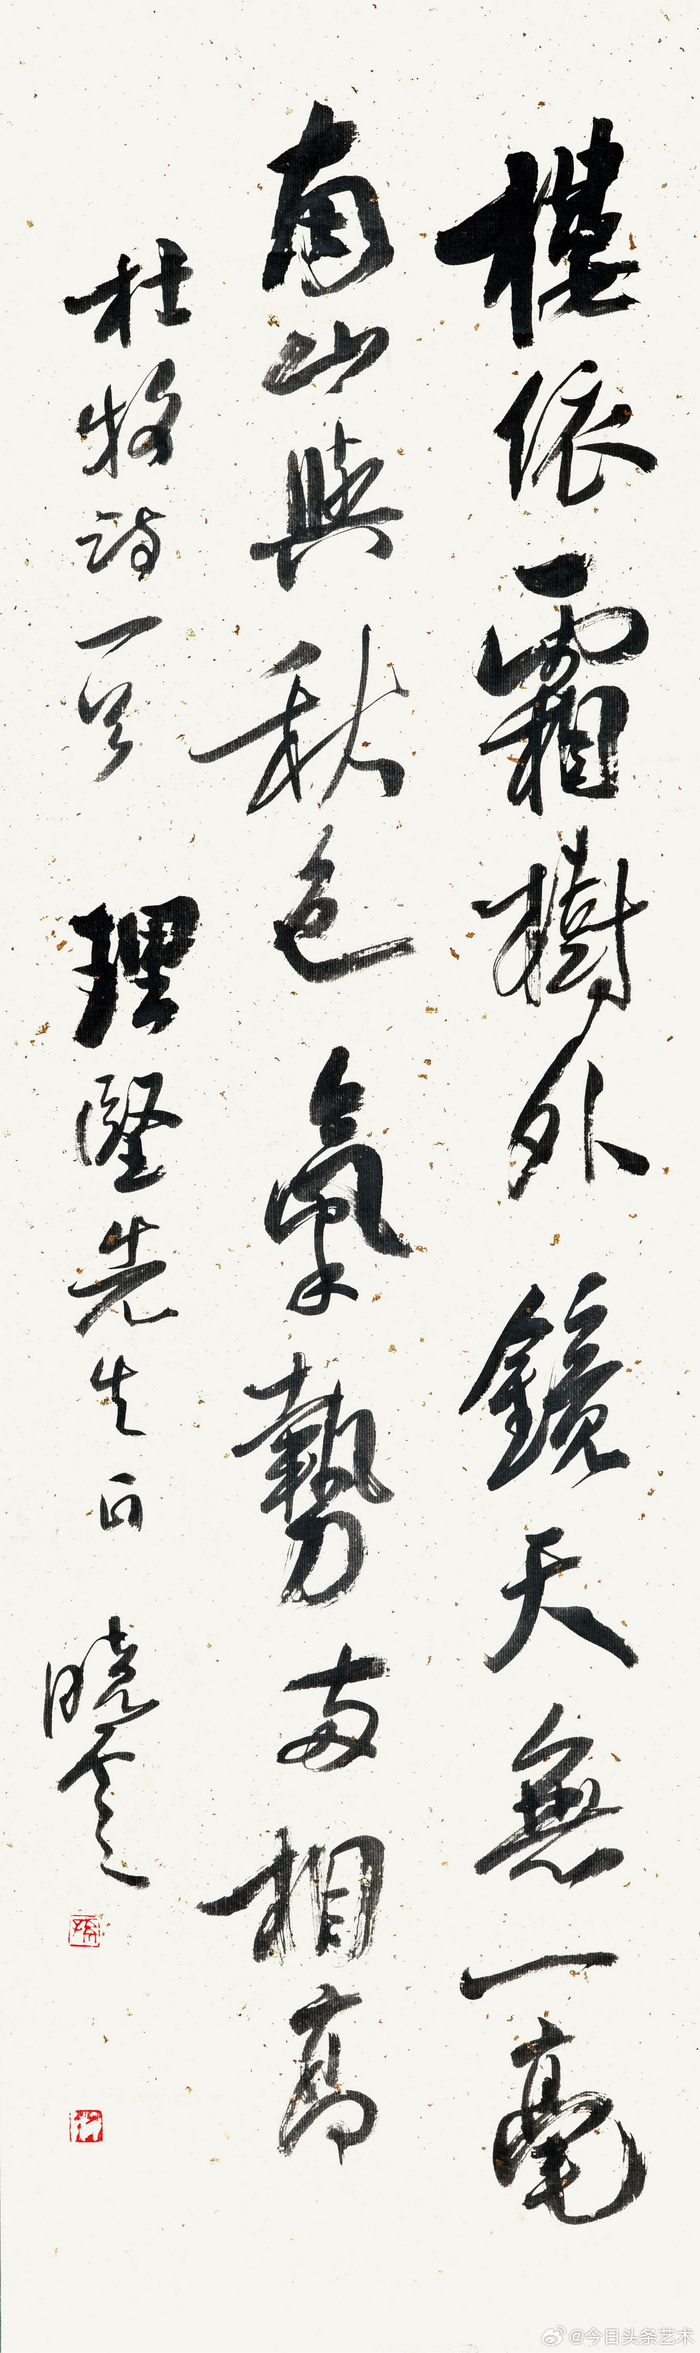 樓依霜樹外鏡天無一毫
南山與秋色氣勢兩相高
杜牧詩一首 理堅先生正 曉雲
@今日头条艺术